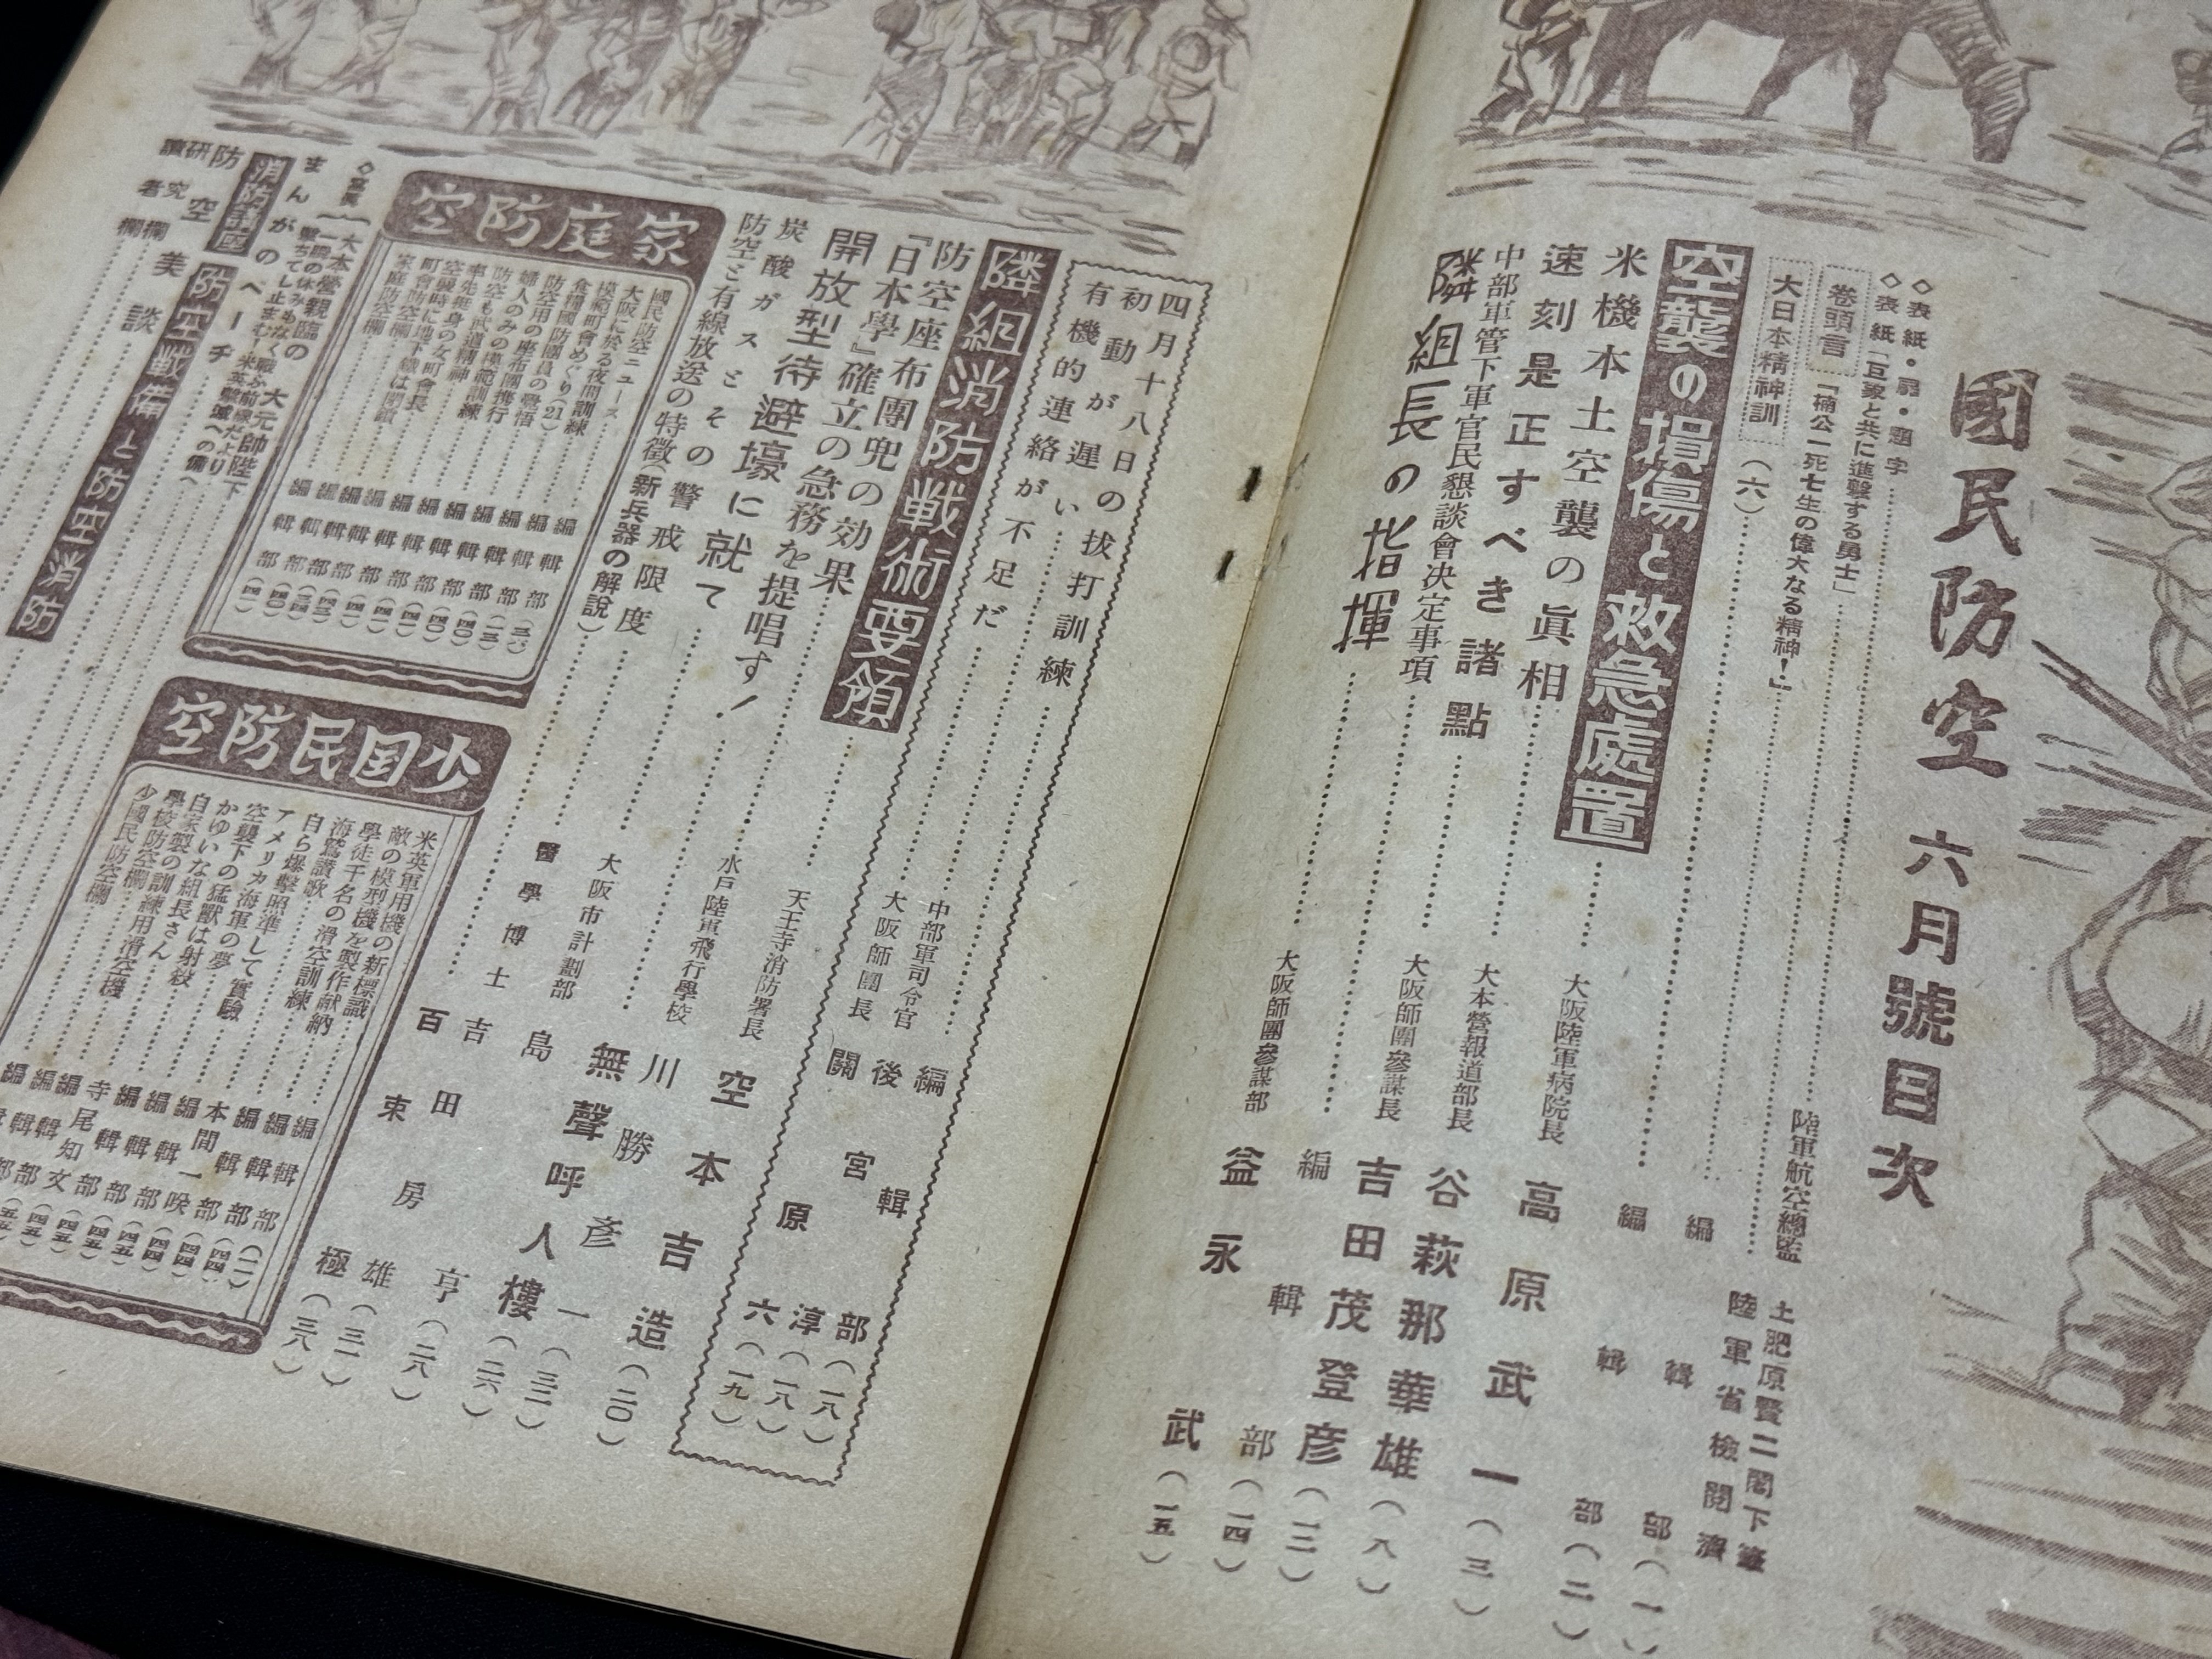 國民防空 六月號目次
◇表紙・扉・題字……陸軍航空總監 土肥原賢二閣下筆
◇表紙「巨象と共に進撃する勇士」……陸軍省檢閲濟
卷頭言 「楠公一死七生の偉大なる精神!」……編輯部(一)
大日本精神訓(六)……編輯部(二)
空襲の損傷と救急處置……大阪陸軍病院長 高原武一(三)
米機本土空襲の眞相……大本營報道部長 谷萩那華雄(八)
速刻是正すべき諸點……大阪師團參謀長 吉田茂登彦(一二)
中部軍管下軍官民懇談會決定事項……編輯部(一四)
隣組長の指揮……大阪師團參謀部 益永武(一五)
四月十八日の抜打訓練……編輯部(一八)
初動が遅い……中部軍司令官 後宮淳(一八)
有機的連絡が不足だ……大阪師團長 關原六(一九)
隣組消防戦術要領……天王寺消防署長 空本吉造(二〇)
防空座布團兜の効果……水戸陸軍飛行學校 川勝彦一(三二)
「日本學」確立の急務を提唱す!……無聲呼人樓(二六)
開放型待避壕に就て……大阪市計劃部 島田亨(二八)
炭酸ガスとその警戒限度……醫學博士 吉房雄(三一)
防空と有線放送の特徴(新兵器の解説)……百束極(三八)
家庭防空
國民防空ニュース……編輯部
大阪に於る夜間訓練……編輯部
模範町會めぐり(21)……編輯部
食糧國防團員の覺悟……編輯部
防空用の座布團携行……編輯部
婦人のみの模範訓練……編輯部
防空も武道精神……編輯部
率先垂身の女町會長……編輯部
空襲時に地下鐵は閉鎖……編輯部
町會防空欄……編輯部
家庭防空欄……編輯部
少国民防空
米英軍用機の新標識……編輯部
敵の模型機を製作献納……編輯部
學徒千名の滑空訓練……編輯部
海鷲讃歌……本間一咲
自ら爆撃照準して實驗……編輯部
アメリカ海軍の夢……編輯部
空襲下の猛獸は射殺……編輯部
かゆいな組長さん……寺尾知文
自家製の訓練用滑空機……編輯部
學校防空欄……編輯部
少國民防空欄
◇寫眞
大本營親臨の大元帥陛下
一瞬の休みめなく戰ふ前線だより
撃ちてし止まむ!米英撃滅への備へ
まんがのページ
消防講座 防空戰備と防空消防
防空美談
研究欄
讀者欄